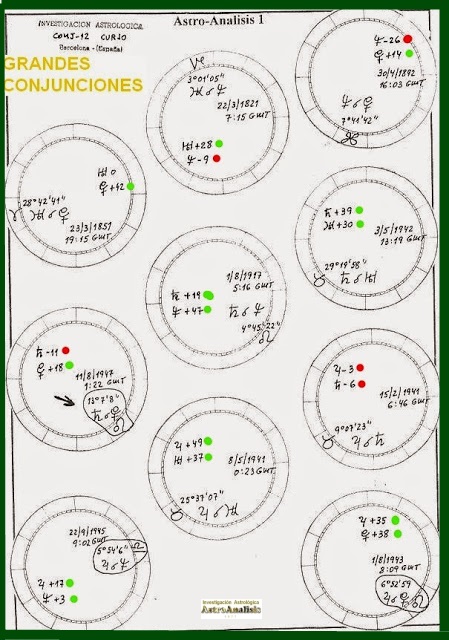 INVESTIGACION ASTROLOGICA
CONJ-12 CURSO
Barcelona - (España)
Astro-Analisis 1
GRANDES
CONJUNCIONES
♑
3°01'05"
♅ ☌ ♆
22/3/1821
7:15 GMT
♅ +28
♆ -9
♆ -26
♇ +14
30/4/1892
16:03 GMT
♆ ☌ ♇
7°41'42"
♊
♅ 0
♇ +42
28°42'41"
♈ ♅ ☌ ♇
23/3/1851
19:15 GMT
♄ +39
♅ +30
3/5/1942
13:19 GMT
29°19'58"
♉ ♄ ☌ ♅
1/8/1917
5:16 GMT
♄ +19
♆ +47
♄ ☌ ♆
4°45'22"
♌
♄ -11
♇ +18
11/8/1947
1:22 GMT
13°7'8"
♄ ☌ ♇
♌
♃ -3
♄ -6
15/2/1941
6:46 GMT
9°07'23"
♉ ♃ ☌ ♄
♃ +49
♅ +37
8/5/1941
0:23 GMT
25°37'07"
♉ ♃ ☌ ♅
22/9/1945
9:02 GMT
5°54'6" ♎
♃ ☌ ♆
♃ +17
♆ +3
♃ +35
♇ +38
1/8/1943
8:09 GMT
6°52'59
♃ ☌ ♇ ♌
Investigación Astrológica
Astro-Analisis